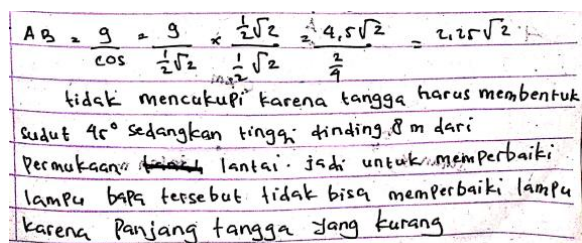 AB = 9/cos = 9/(1/2 √2) × (1/2 √2)/(1/2 √2) = 4,5√2/(2/4) = 2,25√2
tidak mencukupi karena tangga harus membentuk
sudut 45° sedangkan tinggi dinding 8 m dari
permukaan lantai. jadi untuk memperbaiki
lampu bapa tersebut tidak bisa memperbaiki lampu
karena panjang tangga yang kurang